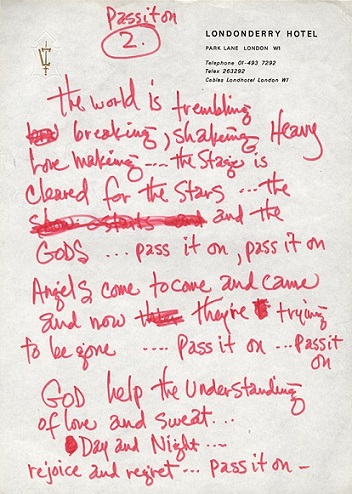 Pass it on
2.
LONDONDERRY HOTEL
PARK LANE LONDON W1
Telephone 01-493 7292
Telex 263292
Cables Londhotel London W1
the world is trembling
breaking, shakeing Heavy
Love making --- the Stage is
cleared for the Stars ... the
and the
GODS ... pass it on, pass it on
Angels come to came and came
and now they're trying
to be gone .... Pass it on ... Pass it
on
GOD help the Understanding
of love and sweat...
Day and Night...
rejoice and regret... pass it on -